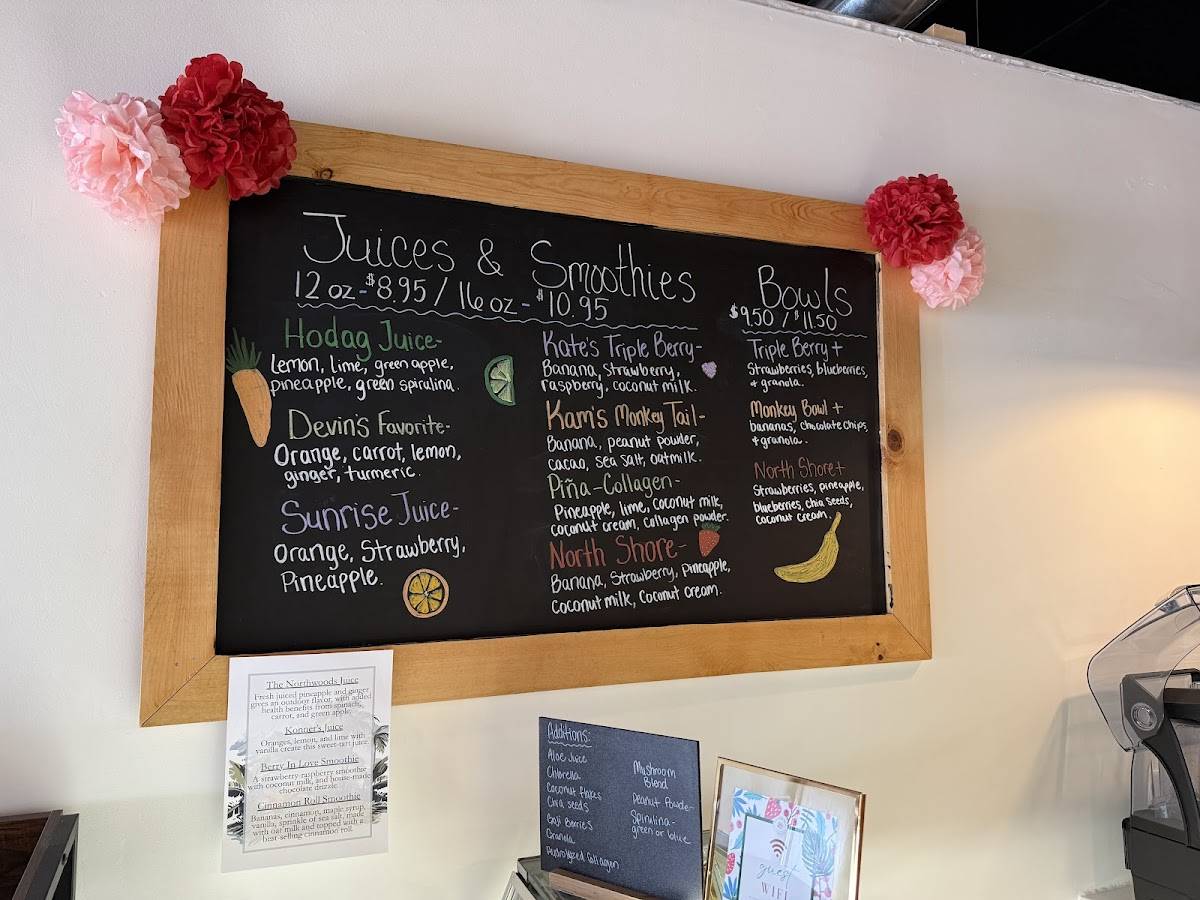 Juices & Smoothies
12 oz - $8.95 / 16 oz - $10.95
Hodag Juice-
Lemon, Lime, green apple,
pineapple, green spirulina.
Devin's Favorite-
Orange, carrot, lemon,
ginger, turmeric.
Sunrise Juice-
Orange, Strawberry,
Pineapple.
Kate's Triple Berry-
Banana, Strawberry,
raspberry, coconut milk.
Kam's Monkey Tail-
Banana, peanut powder,
cacao, sea salt, oatmilk.
Piña-Collagen-
Pineapple, lime, coconut milk,
coconut cream, collagen powder.
North Shore-
Banana, Strawberry, Pineapple,
Coconut milk, Coconut cream.
Bowls
$9.50 / $11.50
Triple Berry +
Strawberries, blueberries,
+ granola.
Monkey Bowl +
bananas, chocolate chips,
+ granola.
North Shore +
Strawberries, pineapple,
blueberries, chia seeds,
coconut cream.
The Northwoods Juice
Fresh juiced pineapple and ginger
gives an outdoor flavor, with added
health benefits from spinach,
carrot, and green apple.
Konner's Juice
Oranges, lemon, and lime with
vanilla create this sweet-tart juice
Berry In Love Smoothie
A strawberry raspberry smoothie
with coconut milk, and house-made
chocolate drizzle.
Cinnamon Roll Smoothie
Bananas, cinnamon, maple syrup,
vanilla, sprinkle of sea salt, made
with oat milk and topped with a
best-selling cinnamon roll.
Additions:
Aloe Juice
Chlorella
Coconut flakes
Chia seeds
Goji Berries
Granola
Hydrolyzed Collagen
Mushroom
Blend
Peanut Powder
Spirulina-
green or blue
guest
WIFI